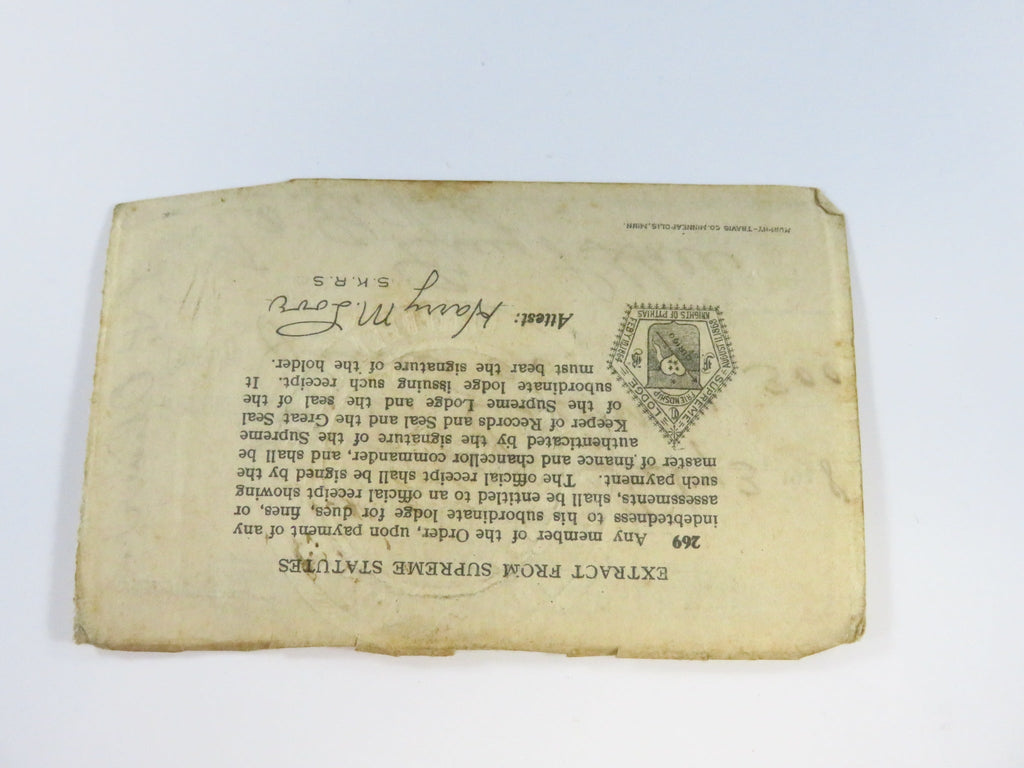 EXTRACT FROM SUPREME STATUTES
269 Any member of the Order, upon payment of any
indebtedness to his subordinate lodge for dues, fines, or
assessments, shall be entitled to an official receipt showing
such payment. The official receipt shall be signed by the
master of finance and chancellor commander, and shall be
authenticated by the signature of the Supreme
Keeper of Records and Seal and the Great Seal
of the Supreme Lodge and the seal of the
subordinate lodge issuing such receipt. It
must bear the signature of the holder.
SUPREME LODGE
FRIENDSHIP
FEBY 19, 1864
AUGUST 11, 1868
KNIGHTS OF PYTHIAS
Attest: Harry M. Love
S.K.R.S
MURPHY-TRAVIS CO. MINNEAPOLIS, MINN.